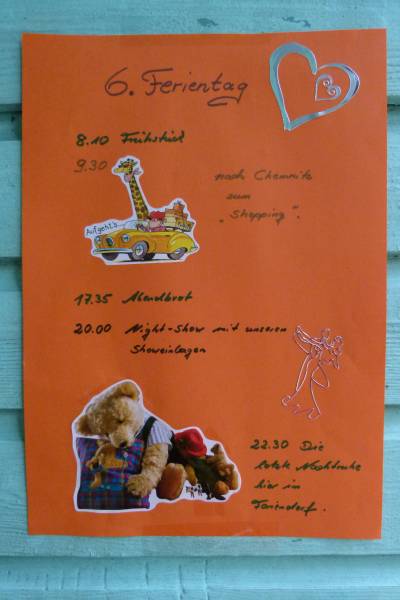 6. Ferientag
8.10 Frühstück
9.30
Auf geht's
nach Chemnitz
zum
„Shopping".
17.35 Abendbrot
20.00 Night-Show mit unseren
Showeinlagen
22.30 Die
letzte Nachtruhe
hier im
Feriendorf.